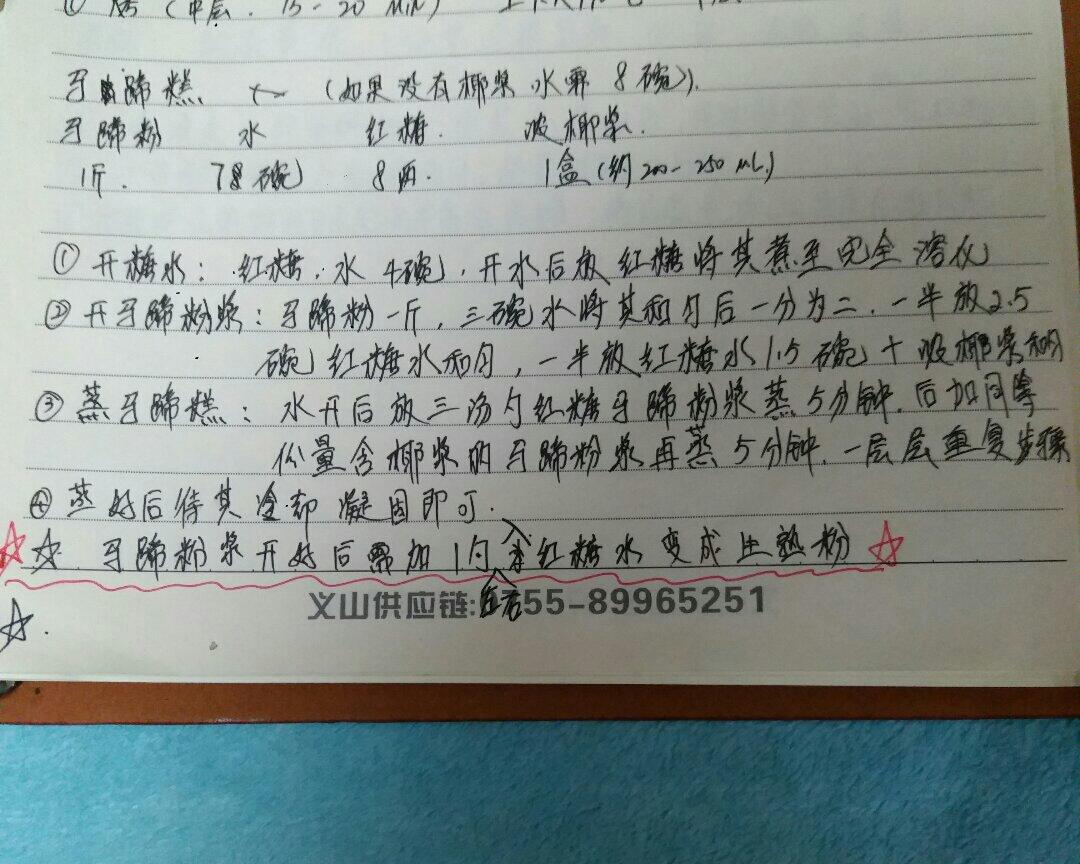 ① 烤 (中层. 15-20 MIN)
马蹄糕 ← (如果没有椰浆 水需 8碗).
马蹄粉 水 红糖. 椰浆.
1斤. 7碗 8两. 1盒(约200-250 ML)
① 开糖水: 红糖, 水 4碗, 开水后放红糖将其煮至完全溶化
② 开马蹄粉浆: 马蹄粉一斤, 三碗水将其和匀后一分为二, 一半放2.5
碗红糖水和匀, 一半放红糖水1.5碗 + 椰浆和匀
③ 蒸马蹄糕: 水开后放三汤勺红糖马蹄粉浆蒸5分钟. 后加同等
份量含椰浆的马蹄粉浆再蒸5分钟. 一层层重复步骤
④ 蒸好后待其冷却凝固即可.
☆☆ 马蹄粉浆开好后需加1勺入红糖水变成生熟粉☆
义山供应链: 55-89965251
☆.